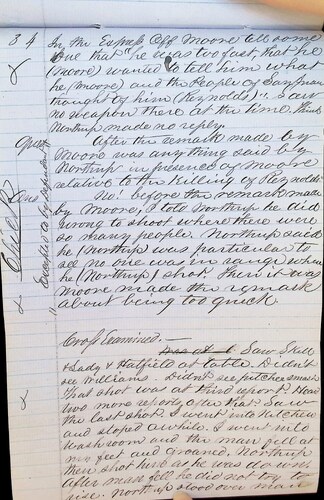 3 4 In the Express Off Moore tell some
one that "he was too fast that he
(Moore) wanted to tell him what
he (Moore) and the People of San Juan
thought of him (Reynolds)". Saw
no weapon there at the time. Think
Northup made no reply.
Ques After the remark made by
Moore was any thing said by
Northup in presence of Moore
relative to the Killing of Reynolds
Excepted to by defendant
Ans No! before the remark made
by Moore, I told Northup he did
wrong to shoot where there were
so many people. Northup said
he (Northup) was particular to
see no one was in range when
he (Northup) shot. Then it was
Moore made the remark
about being too quick
Cross Examined.—
Saw Skill
& Lady & Hatfield at table. Didn't
see Williams. Didn't see pitcher smash
that shot was at third report. Hear
two more reports after that. Saw
the last shot. I went into Kitchen
and stoped awhile. I went into
washroom and the man fell at
my feet and groaned. Northup
then shot him as he was down
after man fell he did not try to
rise. Northup stood over man